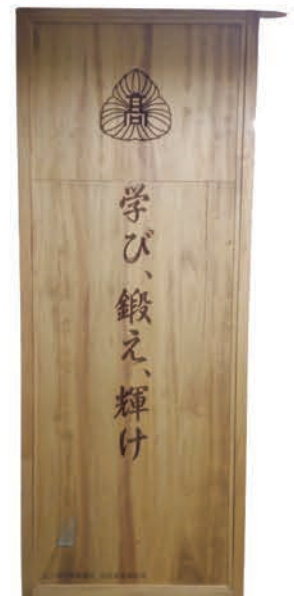 髙
学び、鍛え、輝け